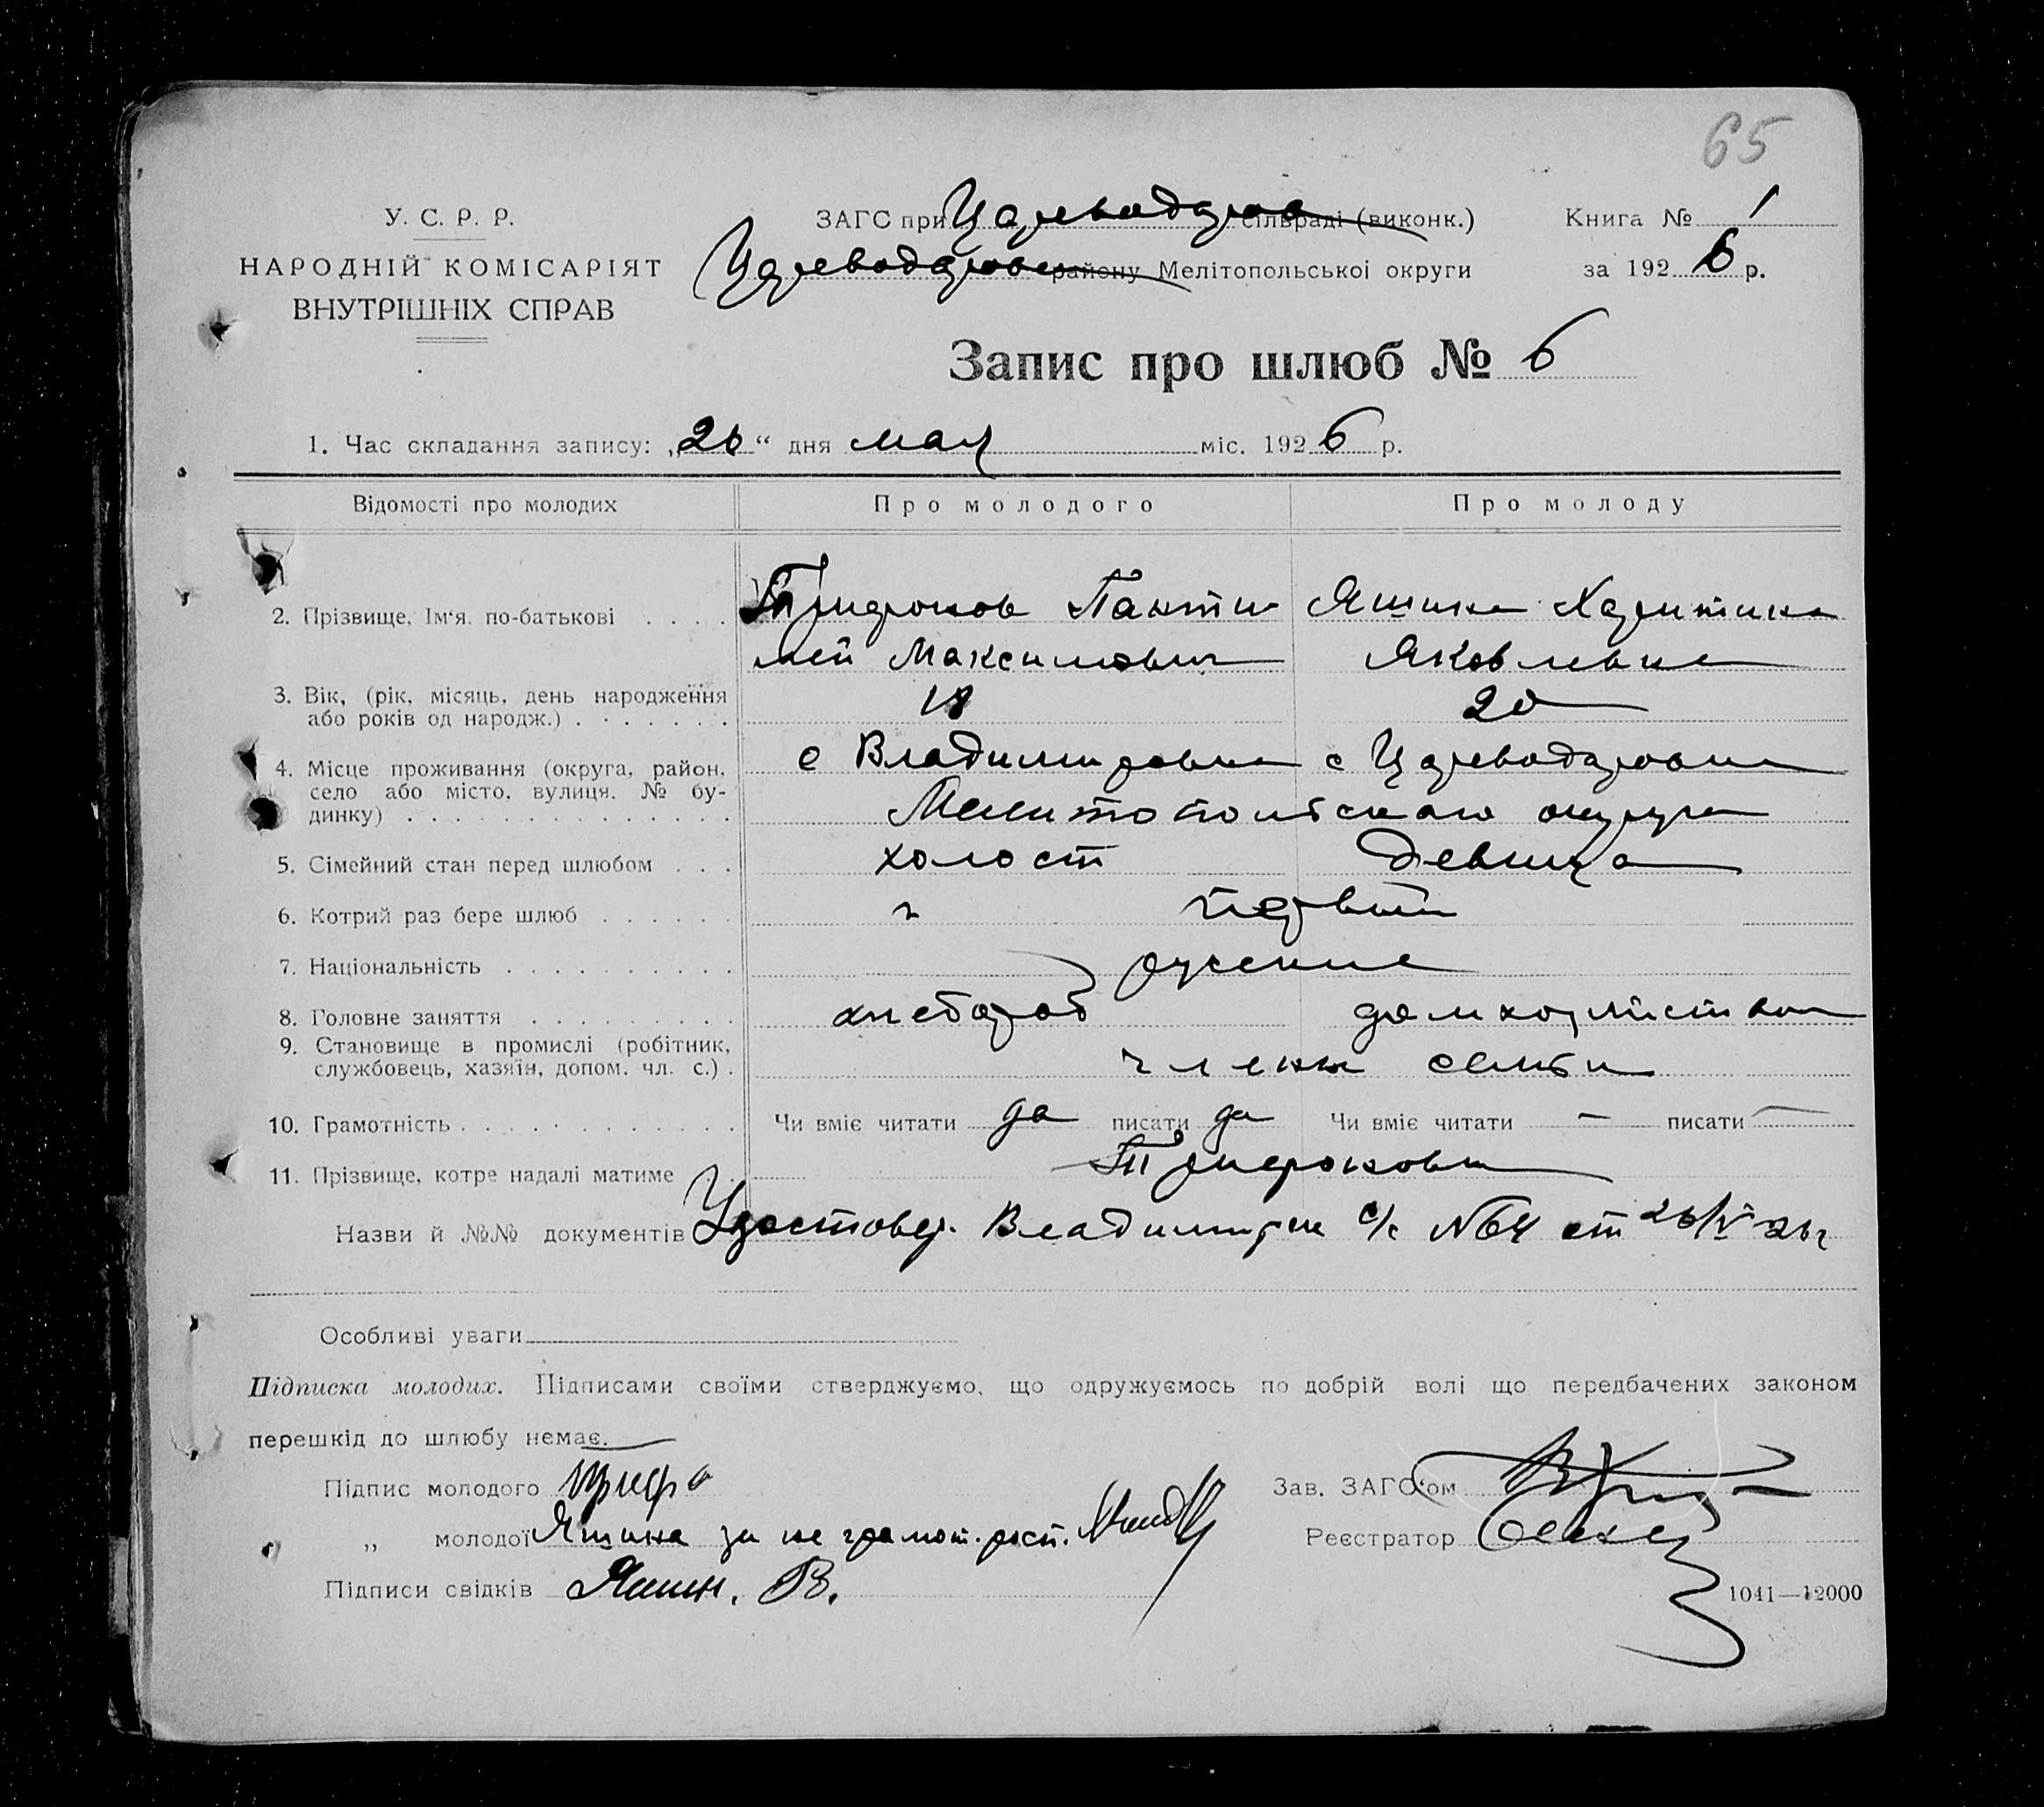 65
У. С. Р. Р.
НАРОДНІЙ КОМІСАРІЯТ
ВНУТРІШНІХ СПРАВ
ЗАГС при Цареводаров сільраді (виконк.)
Цареводаровск району Мелітопольської округи
Книга № 1
за 1926 р.
Запис про шлюб № 6
1. Час складання запису: „26“ дня мая міс. 1926 р.
Відомості про молодих Про молодого Про молоду
2. Прізвище, Ім'я, по-батькові . . . . Трифонов Панти Яшина Харитина
лей Максимович Яковлевна
3. Вік, (рік, місяць, день народження
або років од народж.) . . . . . . . 18 20
4. Місце проживання (округа, район,
село або місто, вулиця, № бу-
динку) . . . . . . . . . . . . . .
с Владимировка с Цареводаровка
Мелитопольского округа
5. Сімейний стан перед шлюбом . . . холост девица
6. Котрий раз бере шлюб . . . . . . первый
7. Національність . . . . . . . . . . русские
8. Головне заняття . . . . . . . . . хлебороб
9. Становище в промислі (робітник,
службовець, хазяїн, допом. чл. с.) . члены семьи
10. Грамотність . . . . . . . . . . . . Чи вміє читати да писати да Чи вміє читати — писати —
11. Прізвище, котре надалі матиме . . Трифоновы
Назви й №№ документів Удостовер. Владимир с/с №64 от 26/V-26г
Особливі уваги
Підписка молодих. Підписами своїми стверджуємо, що одружуємось по добрій волі що передбачених законом
перешкід до шлюбу немає.
Підпис молодого Трифо
„ молодої Яшина за не грамот. расп.
Підписи свідків Яшин. В.
Зав. ЗАГС'ом
Реєстратор
1041—12000